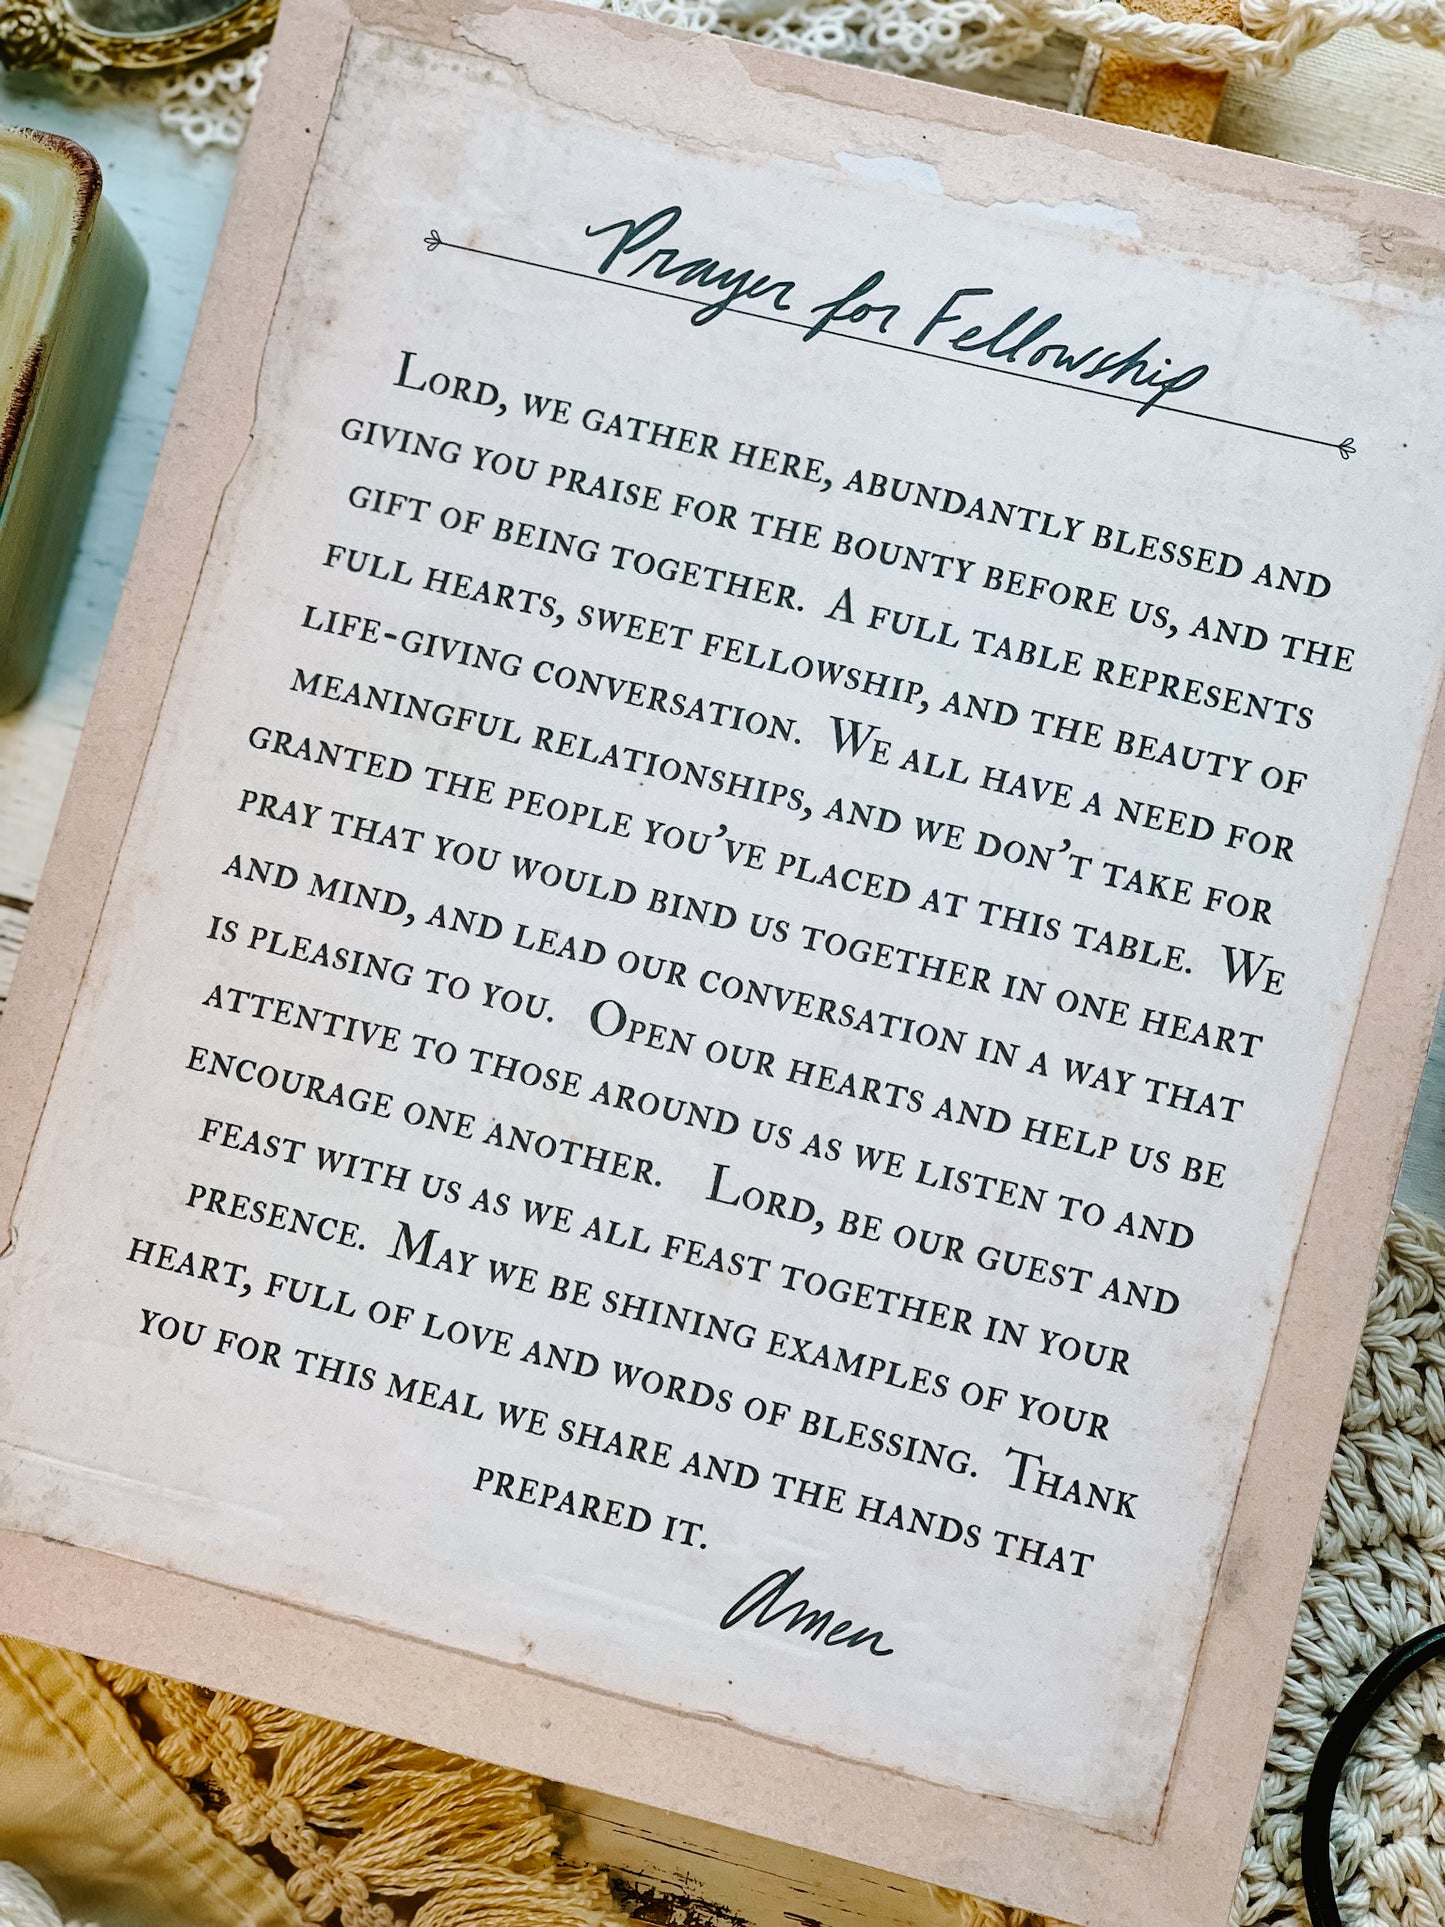 Prayer for Fellowship
Lord, we gather here, abundantly blessed and
giving you praise for the bounty before us, and the
gift of being together. A full table represents
full hearts, sweet fellowship, and the beauty of
life-giving conversation. We all have a need for
meaningful relationships, and we don't take for
granted the people you've placed at this table. We
pray that you would bind us together in one heart
and mind, and lead our conversation in a way that
is pleasing to you. Open our hearts and help us be
attentive to those around us as we listen to and
encourage one another. Lord, be our guest and
feast with us as we all feast together in your
presence. May we be shining examples of your
heart, full of love and words of blessing. Thank
you for this meal we share and the hands that
prepared it.
Amen